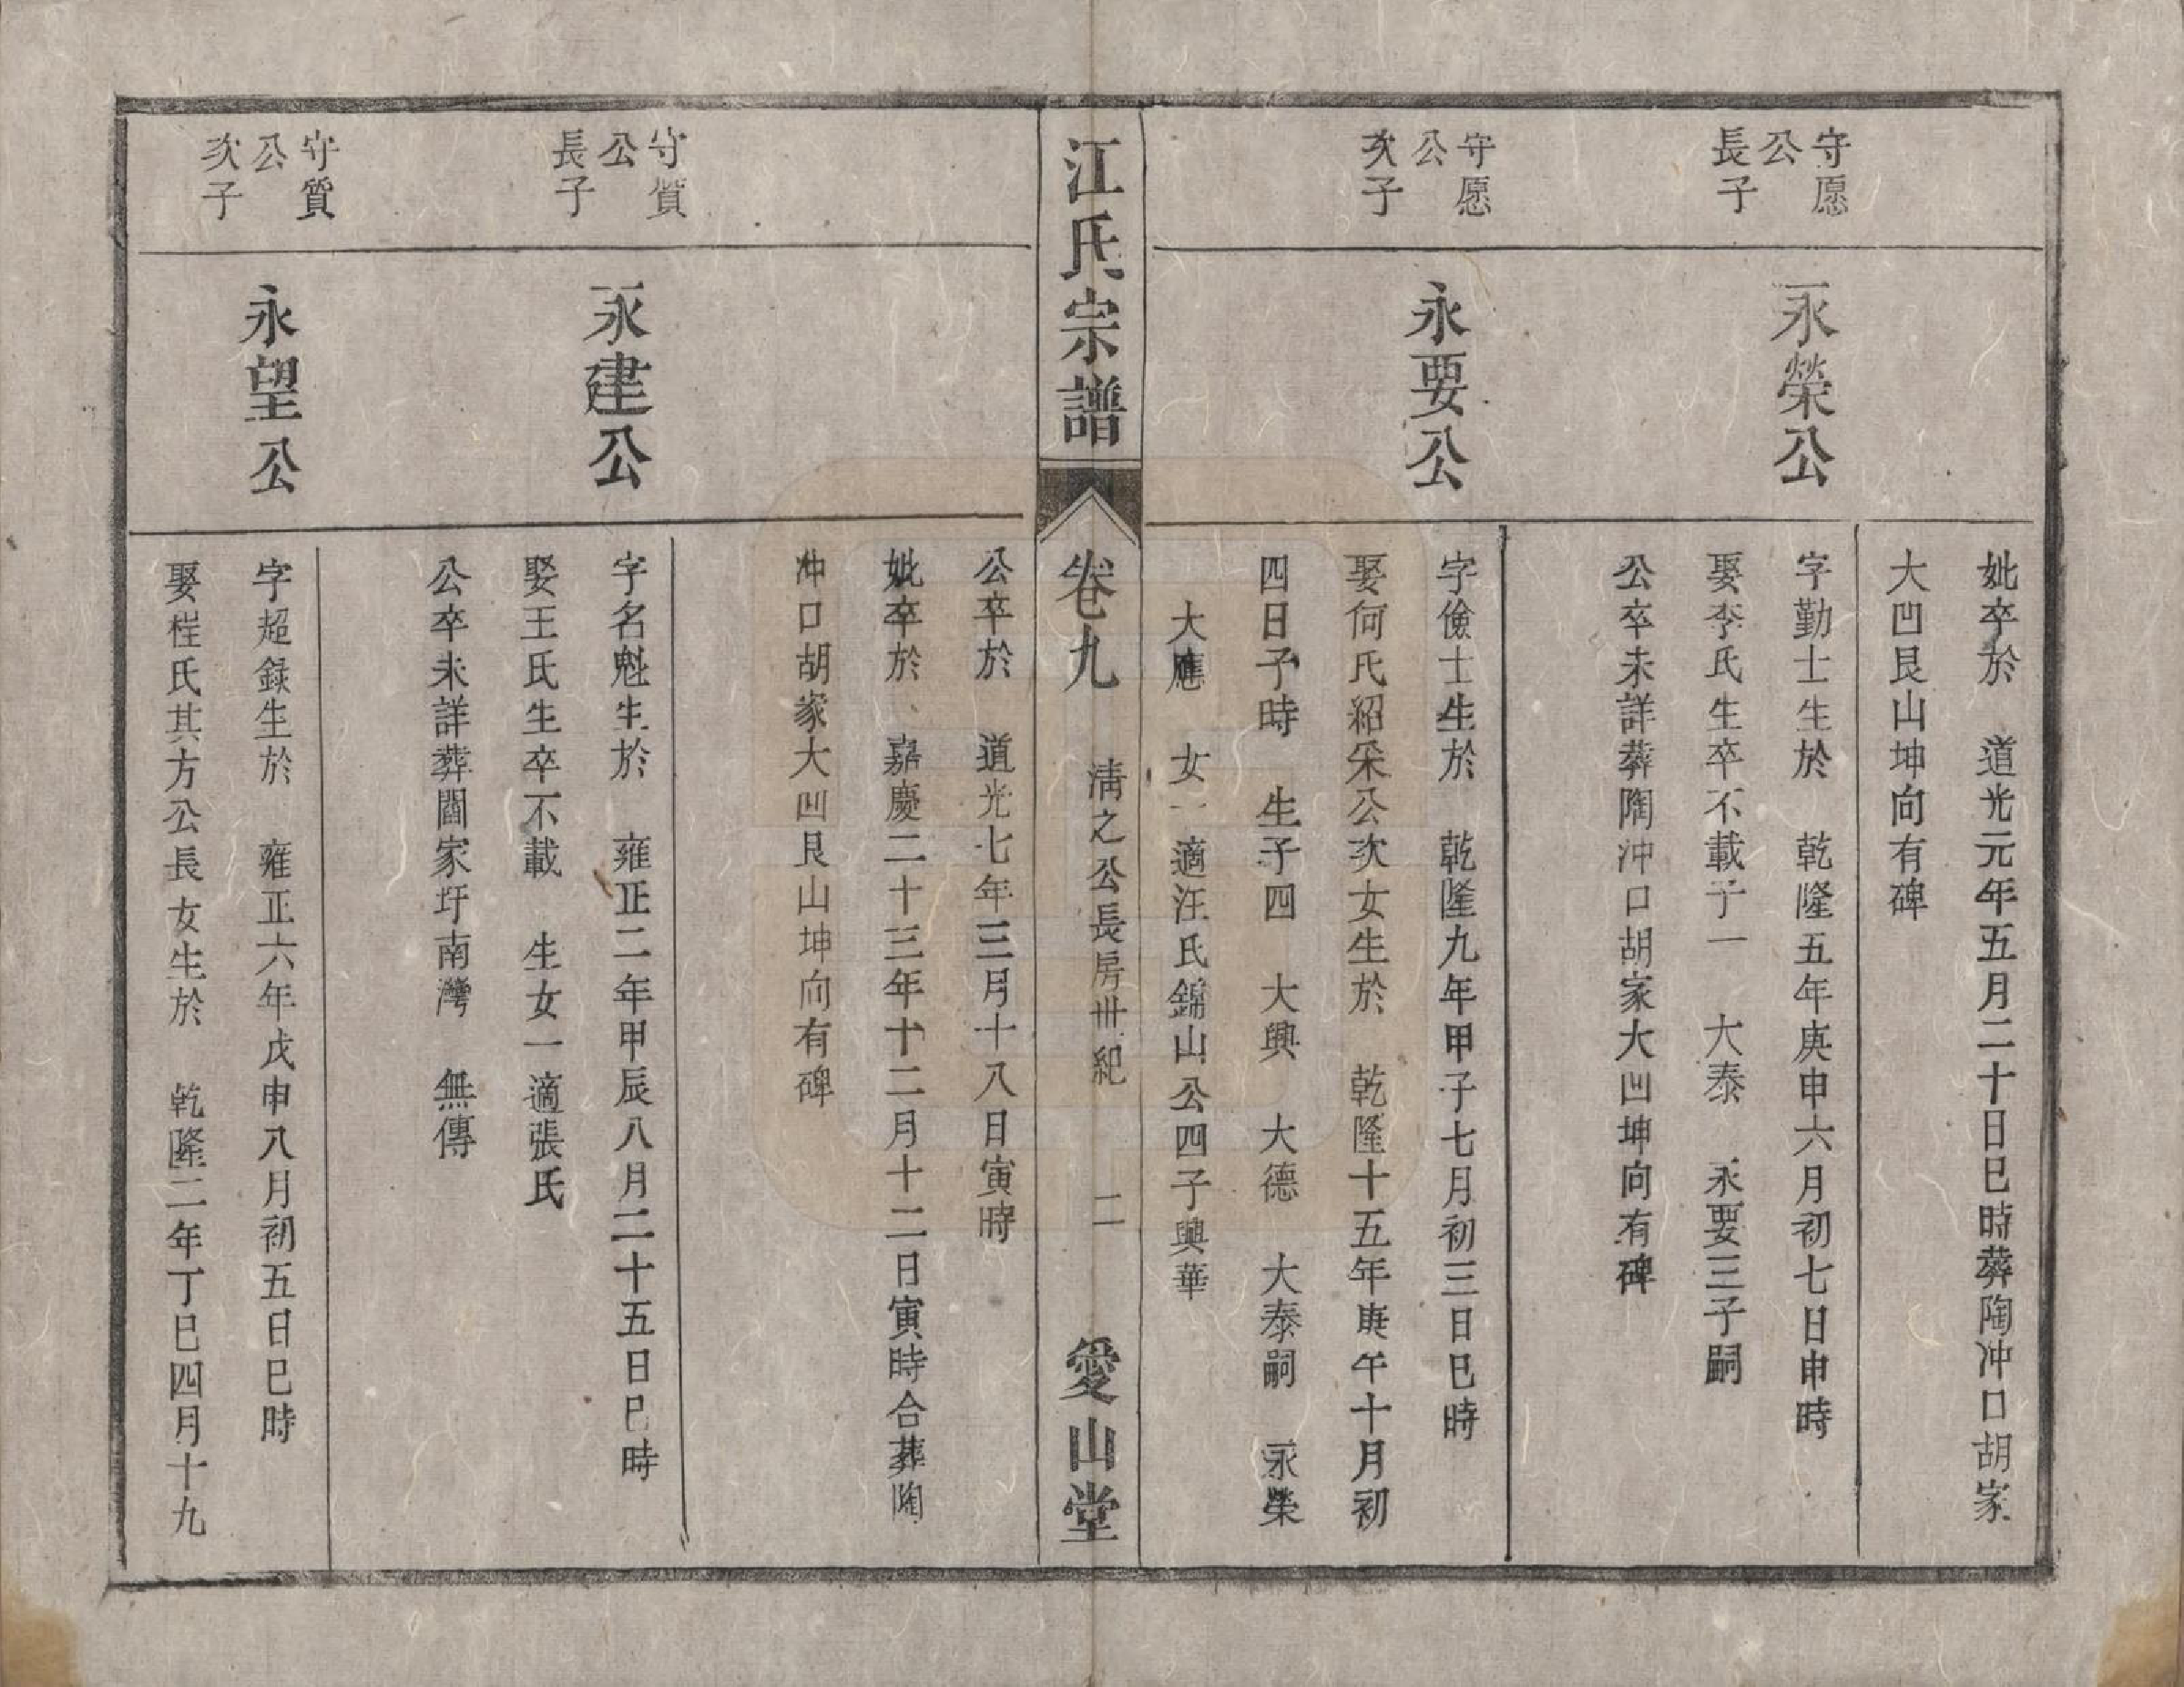 妣卒於　道光元年五月二十日巳時葬陶冲口胡家
大凹艮山坤向有碑
守愿
公
長子
永榮公
字勤士生於　乾隆五年庚申六月初七日申時
娶李氏生卒不載子一　大泰　永要三子嗣
公卒未詳葬陶冲口胡家大凹坤向有碑
守愿
公
次子
永要公
字儉士生於　乾隆九年甲子七月初三日巳時
娶何氏紹采公次女生於　乾隆十五年庚午十月初
四日子時　生子四　大興　大德　大泰嗣　永榮
大應　女一適汪氏錦山公四子興華
江氏宗譜
卷九　清之公長房卅紀　二
愛山堂
公卒於　道光七年三月十八日寅時
妣卒於　嘉慶二十三年十二月十二日寅時合葬陶
冲口胡家大凹艮山坤向有碑
守質
公
長子
永建公
字名魁生於　雍正二年甲辰八月二十五日巳時
娶王氏生卒不載　生女一適張氏
公卒未詳葬閻家圩南灣　無傳
守質
公
次子
永望公
字超錄生於　雍正六年戊申八月初五日巳時
娶程氏其方公長女生於　乾隆二年丁巳四月十九